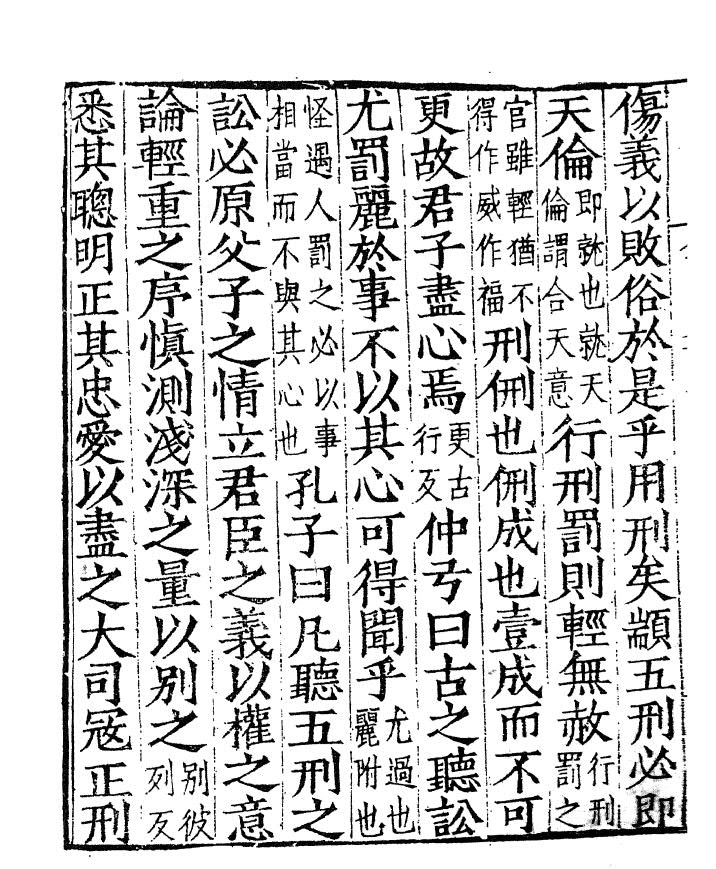 傷義以敗俗於是乎用刑矣顓五刑必即
天倫即就也就天倫謂合天意行刑罰則輕無赦行刑罰之
官雖輕猶不得作威作福刑侀也侀成也壹成而不可
更故君子盡心焉更古行反仲弓曰古之聽訟
尤罰麗於事不以其心可得聞乎尤過也麗附也
怪遇人罰之必以事相當而不與其心也孔子曰凡聽五刑之
訟必原父子之情立君臣之義以權之意
論輕重之序慎測淺深之量以别之别彼列反
悉其聰明正其忠愛以盡之大司寇正刑